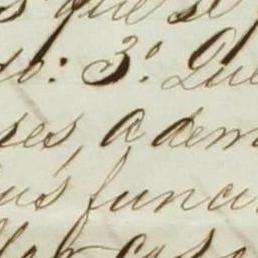 que se
do: 3.º Que
res, adem
us funci
caso